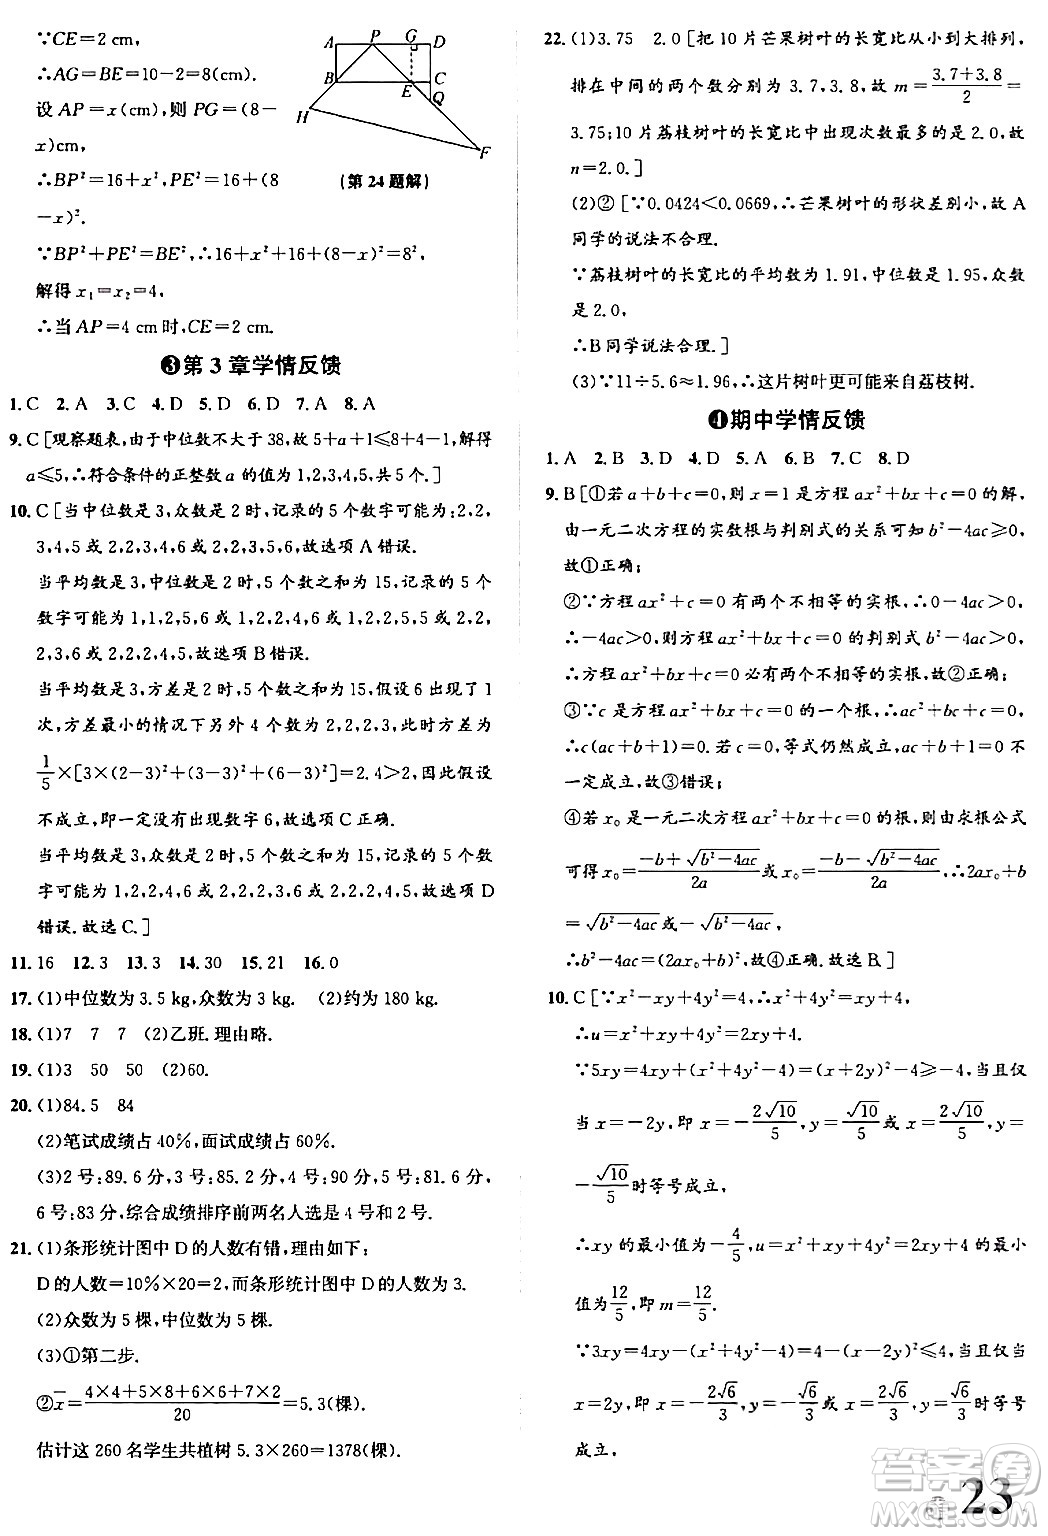 ∵CE=2 cm,
∴AG=BE=10-2=8(cm).
设 AP=x(cm),则 PG=(8-
x)cm,
∴BP²=16+x²,PE²=16+(8
-x)².
A P G D
B E C
Q
H
F
(第 24 题解)
∵BP²+PE²=BE²,∴16+x²+16+(8-x)²=8²,
解得 x₁=x₂=4,
∴当 AP=4 cm 时,CE=2 cm.
❸第 3 章学情反馈
1. C 2. A 3. C 4. D 5. D 6. D 7. A 8. A
9. C[观察题表,由于中位数不大于 38,故 5+a+1≤8+4-1,解得
a≤5,∴符合条件的正整数 a 的值为 1,2,3,4,5,共 5 个.]
10. C[当中位数是 3,众数是 2 时,记录的 5 个数字可能为:2,2,
3,4,5 或 2,2,3,4,6 或 2,2,3,5,6,故选项 A 错误.
当平均数是 3,中位数是 2 时,5 个数之和为 15,记录的 5 个
数字可能为 1,1,2,5,6 或 1,2,2,4,6 或 1,2,2,5,5 或 2,2,
2,3,6 或 2,2,2,4,5,故选项 B 错误.
当平均数是 3,方差是 2 时,5 个数之和为 15,假设 6 出现了 1
次,方差最小的情况下另外 4 个数为 2,2,2,3,此时方差为
1/5×[3×(2-3)²+(3-3)²+(6-3)²]=2.4>2,因此假设
不成立,即一定没有出现数字 6,故选项 C 正确.
当平均数是 3,众数是 2 时,5 个数之和为 15,记录的 5 个数
字可能为 1,2,2,4,6 或 1,2,2,5,5 或 2,2,2,4,5,故选项 D
错误.故选 C.]
11. 16 12. 3 13. 3 14. 30 15. 21 16. 0
17. (1)中位数为 3.5 kg,众数为 3 kg. (2)约为 180 kg.
18. (1)7 7 7 (2)乙班.理由略.
19. (1)3 50 50 (2)60.
20. (1)84.5 84
(2)笔试成绩占 40%,面试成绩占 60%.
(3)2 号:89.6 分,3 号:85.2 分,4 号:90 分,5 号:81.6 分,
6 号:83 分,综合成绩排序前两名人选是 4 号和 2 号.
21. (1)条形统计图中 D 的人数有错,理由如下:
D 的人数=10%×20=2,而条形统计图中 D 的人数为 3.
(2)众数为 5 棵,中位数为 5 棵.
(3)①第二步.
②x̄=(4×4+5×8+6×6+7×2)/20=5.3(棵).
估计这 260 名学生共植树 5.3×260=1378(棵).
22. (1)3.75 2.0[把 10 片芒果树叶的长宽比从小到大排列,
排在中间的两个数分别为 3.7,3.8,故 m=(3.7+3.8)/2=
3.75;10 片荔枝树叶的长宽比中出现次数最多的是 2.0,故
n=2.0.]
(2)②[∵0.0424<0.0669,∴芒果树叶的形状差别小,故 A
同学的说法不合理.
∵荔枝树叶的长宽比的平均数为 1.91,中位数是 1.95,众数
是 2.0,
∴B 同学说法合理.]
(3)∵11÷5.6≈1.96,∴这片树叶更可能来自荔枝树.
❹期中学情反馈
1. A 2. B 3. D 4. D 5. A 6. B 7. C 8. D
9. B[①若 a+b+c=0,则 x=1 是方程 ax²+bx+c=0 的解,
由一元二次方程的实数根与判别式的关系可知 b²-4ac≥0,
故①正确;
②∵方程 ax²+c=0 有两个不相等的实根,∴0-4ac>0,
∴-4ac>0,则方程 ax²+bx+c=0 的判别式 b²-4ac>0,
∴方程 ax²+bx+c=0 必有两个不相等的实根,故②正确;
③∵c 是方程 ax²+bx+c=0 的一个根,∴ac²+bc+c=0,
∴c(ac+b+1)=0.若 c=0,等式仍然成立,∴ac+b+1=0 不
一定成立,故③错误;
④若 x₀ 是一元二次方程 ax²+bx+c=0 的根,则由求根公式
可得 x₀=(-b+√(b²-4ac))/2a 或 x₀=(-b-√(b²-4ac))/2a,∴2ax₀+b
=√(b²-4ac)或-√(b²-4ac),
∴b²-4ac=(2ax₀+b)²,故④正确.故选 B.]
10. C[∵x²-xy+4y²=4,∴x²+4y²=xy+4,
∴u=x²+xy+4y²=2xy+4.
∵5xy=4xy+(x²+4y²)-4=(x+2y)²-4≥-4,当且仅
当 x=-2y,即 x=-2√10/5,y=√10/5或 x=2√10/5,y=
-√10/5时等号成立,
∴xy 的最小值为-4/5,u=x²+xy+4y²=2xy+4 的最小
值为12/5,即 m=12/5.
∵3xy=4xy-(x²+4y²-4)=4-(x-2y)²≤4,当且仅当
x=2y,即 x=-2√6/3,y=-√6/3或 x=2√6/3,y=√6/3时等号
成立,
答案圈
MXQE.COM
23